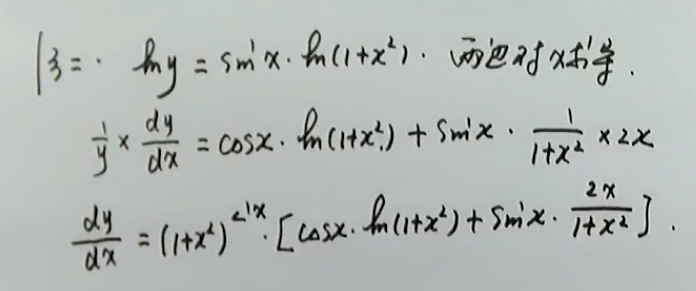 ln y = sin x · ln(1+x²) · 两边对x求导.
1/y × dy/dx = cos x · ln(1+x²) + sin x · 1/(1+x²) × 2x
dy/dx = (1+x²)^(sin x) · [cos x · ln(1+x²) + sin x · 2x/(1+x²)].